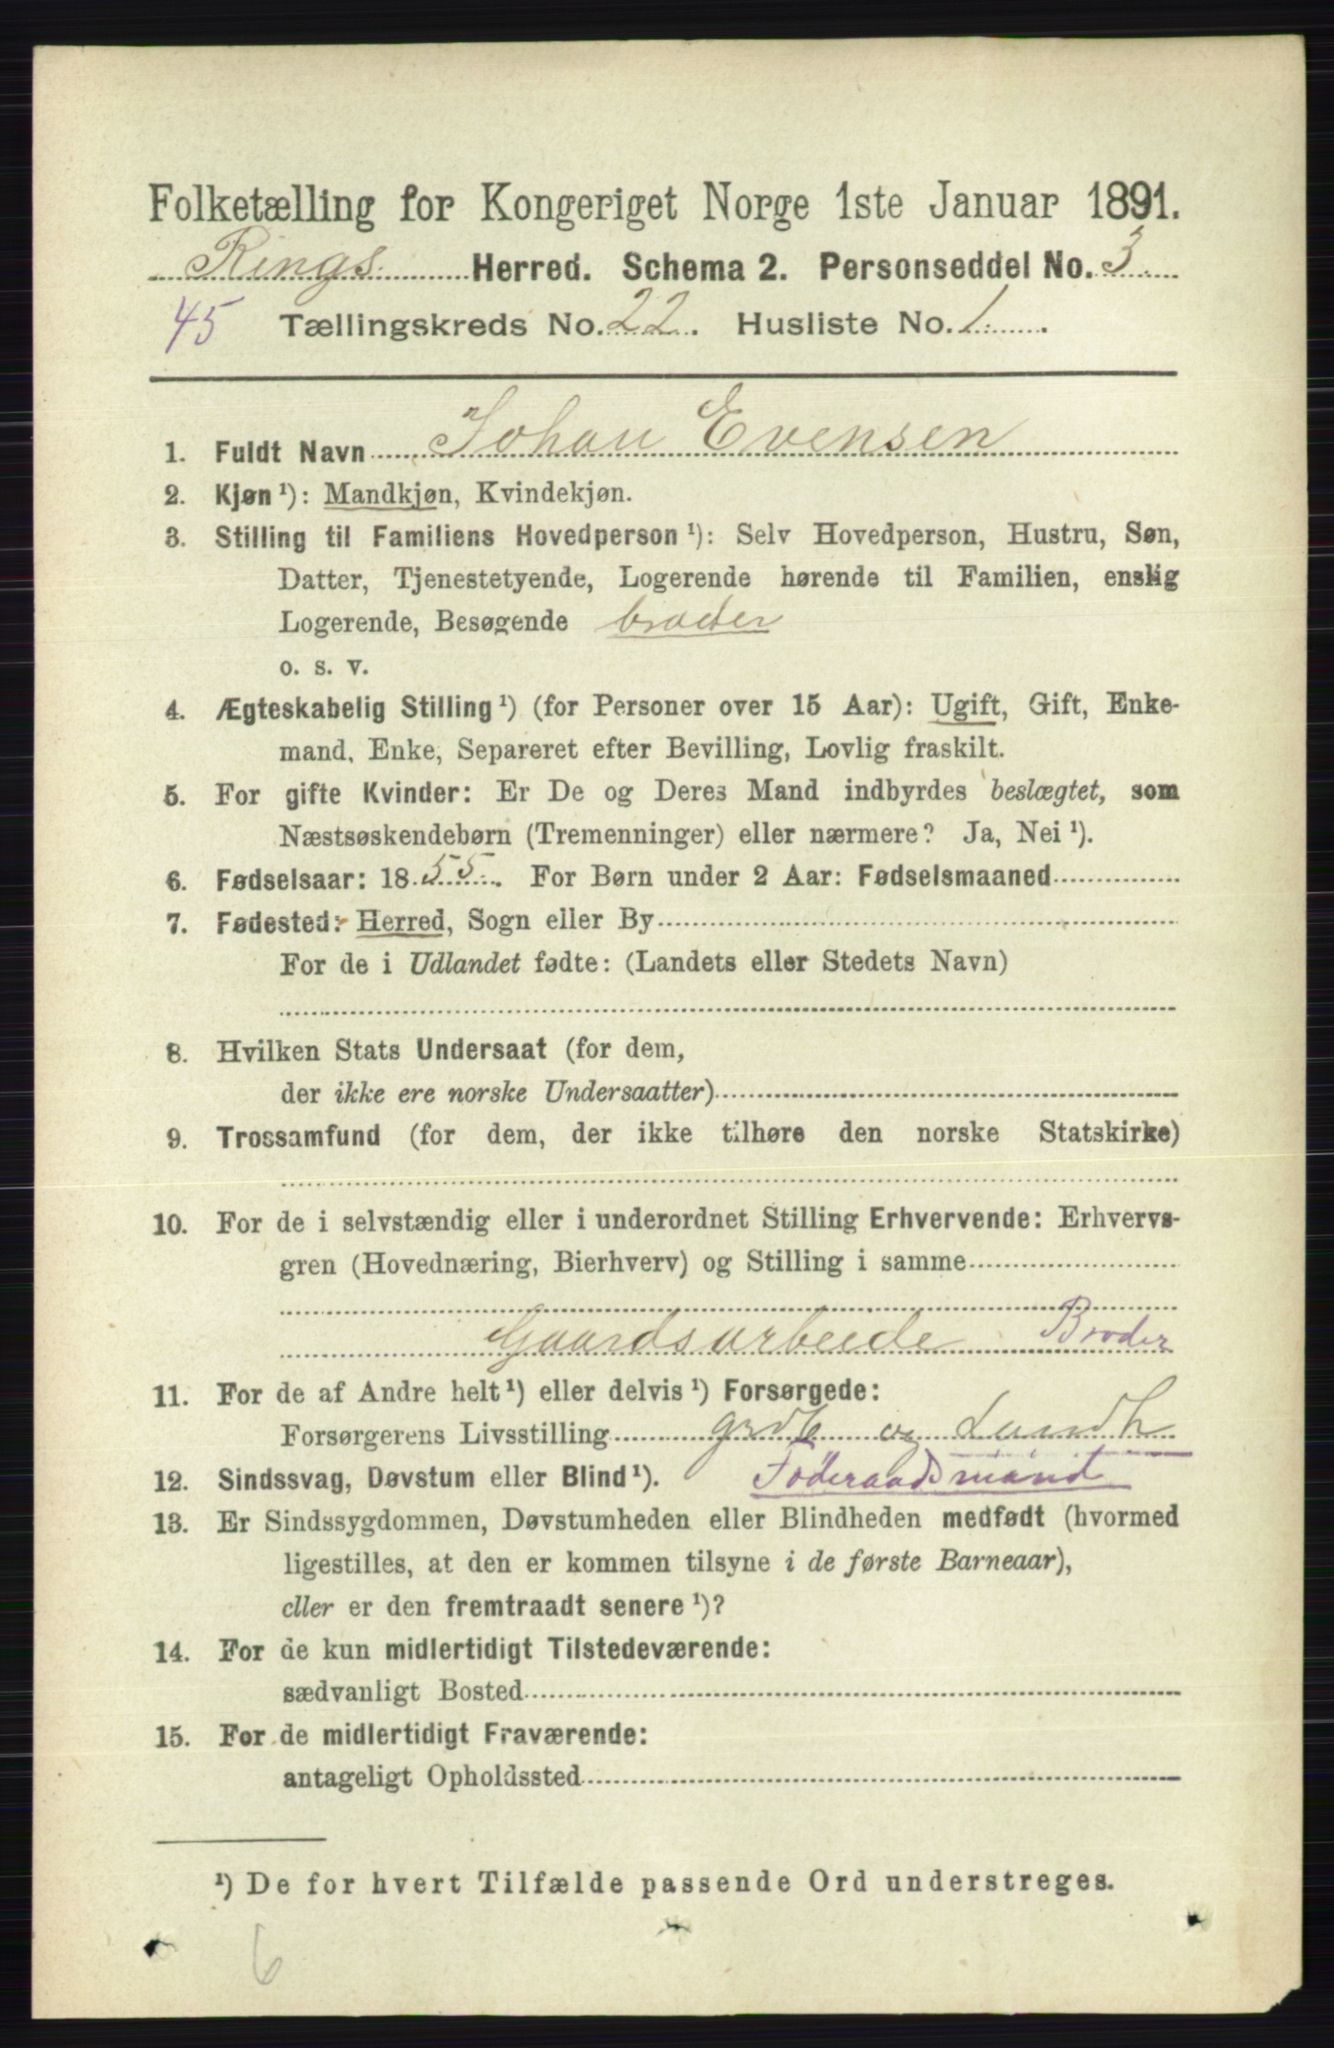 Folketælling for Kongeriget Norge 1ste Januar 1891.
Rings Herred. Schema 2. Personseddel No. 3
45 Tællingskreds No. 22. Husliste No. 1.
1. Fuldt Navn Johan Evensen
2. Kjøn ¹): Mandkjøn, Kvindekjøn.
3. Stilling til Familiens Hovedperson ¹): Selv Hovedperson, Hustru, Søn,
Datter, Tjenestetyende, Logerende hørende til Familien, enslig
Logerende, Besøgende broder
o. s. v.
4. Ægteskabelig Stilling ¹) (for Personer over 15 Aar): Ugift, Gift, Enke-
mand, Enke, Separeret efter Bevilling, Lovlig fraskilt.
5. For gifte Kvinder: Er De og Deres Mand indbyrdes beslægtet, som
Næstsøskendebørn (Tremenninger) eller nærmere? Ja, Nei ¹).
6. Fødselsaar: 1855. For Børn under 2 Aar: Fødselsmaaned
7. Fødested: Herred, Sogn eller By
For de i Udlandet fødte: (Landets eller Stedets Navn)
8. Hvilken Stats Undersaat (for dem,
der ikke ere norske Undersaatter)
9. Trossamfund (for dem, der ikke tilhøre den norske Statskirke)
10. For de i selvstændig eller i underordnet Stilling Erhvervende: Erhvervs-
gren (Hovednæring, Bierhverv) og Stilling i samme
Gaardsarbeide Broder
11. For de af Andre helt ¹) eller delvis ¹) Forsørgede:
Forsørgerens Livsstilling grdb og Landh
12. Sindssvag, Døvstum eller Blind ¹). Føderaadsmand
13. Er Sindssygdommen, Døvstumheden eller Blindheden medfødt (hvormed
ligestilles, at den er kommen tilsyne i de første Barneaar),
eller er den fremtraadt senere ¹)?
14. For de kun midlertidigt Tilstedeværende:
sædvanligt Bosted
15. For de midlertidigt Fraværende:
antageligt Opholdssted
¹) De for hvert Tilfælde passende Ord understreges.
6